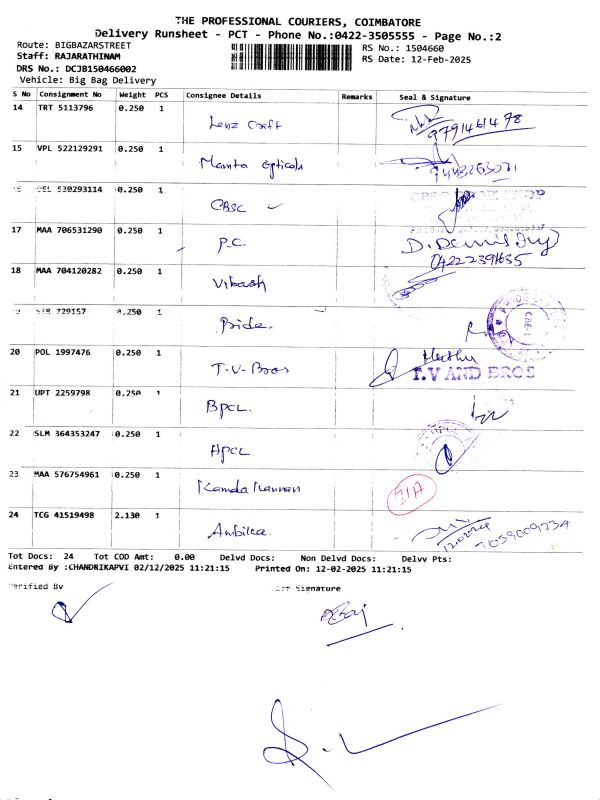 THE PROFESSIONAL COURIERS, COIMBATORE
Delivery Runsheet - PCT - Phone No.:0422-3505555 - Page No.:2
Route: BIGBAZARSTREET RS No.: 1504660
Staff: RAJARATHINAM RS Date: 12-Feb-2025
DRS No.: DCJB150466002
Vehicle: Big Bag Delivery
S No Consignment No Weight PCS Consignee Details Remarks Seal & Signature
14 TRT 5113796 0.250 1
Lenz Craft 9791461478
15 VPL 522129291 0.250 1
Mamta Opticals 9443263071
530293114 0.250 1
CBSC
17 MAA 706531290 0.250 1
P.C. 04222391635
18 MAA 704120282 0.250 1
Vikash
729157 0.250 1
Pride.
20 POL 1997476 0.250 1
T.V. Bros T.V AND BROS
21 UPT 2259798 0.250 1
BPCL.
22 SLM 364353247 0.250 1
HPCL
23 MAA 576754961 0.250 1
Kamda Kannan
24 TCG 41519498 2.130 1
Ambika.
Tot Docs: 24 Tot COD Amt: 0.00 Delvd Docs: Non Delvd Docs: Delvv Pts:
Entered By :CHANDRIKAPVI 02/12/2025 11:21:15 Printed On: 12-02-2025 11:21:15
Verified By Signature